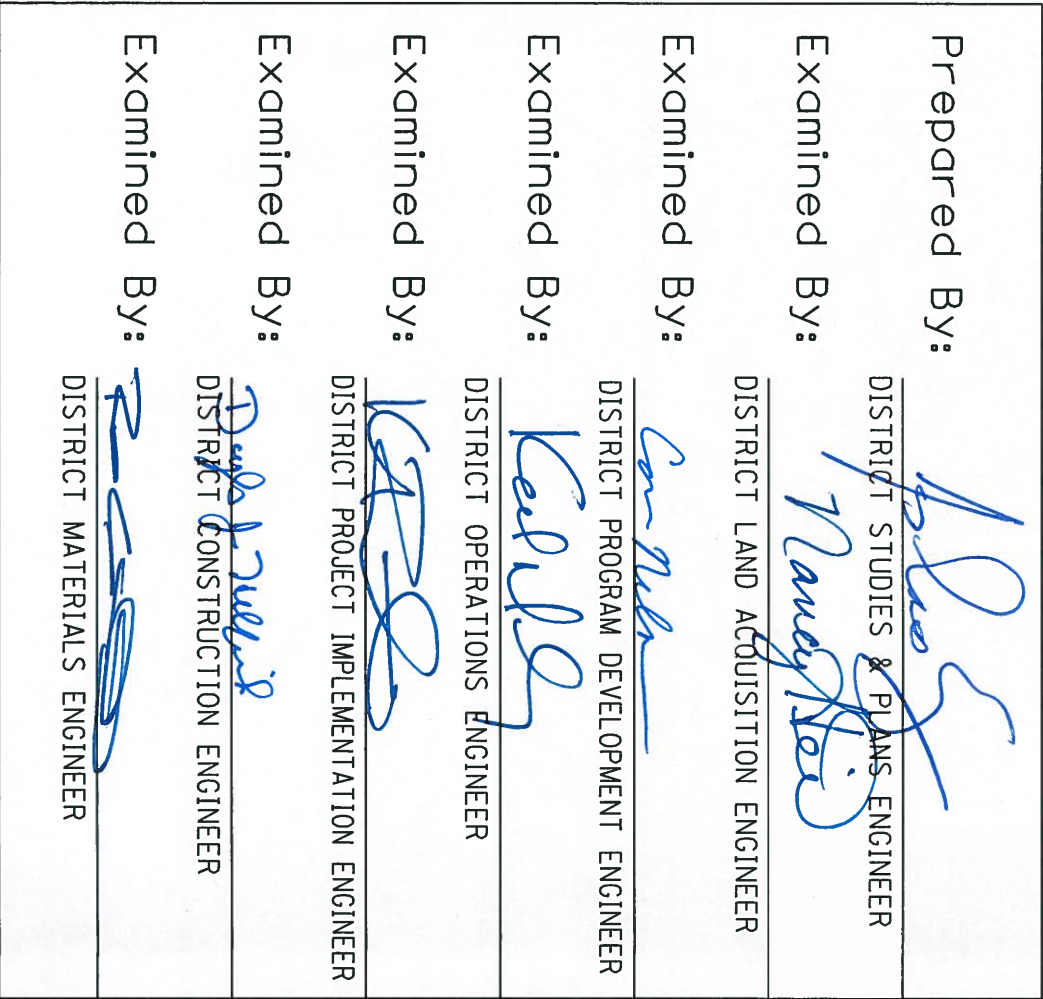 Prepared By:
DISTRICT STUDIES & PLANS ENGINEER
Examined By: Nancy
DISTRICT LAND ACQUISITION ENGINEER
Examined By:
DISTRICT PROGRAM DEVELOPMENT ENGINEER
Examined By:
DISTRICT OPERATIONS ENGINEER
Examined By:
DISTRICT PROJECT IMPLEMENTATION ENGINEER
Examined By:
DISTRICT CONSTRUCTION ENGINEER
Examined By:
DISTRICT MATERIALS ENGINEER